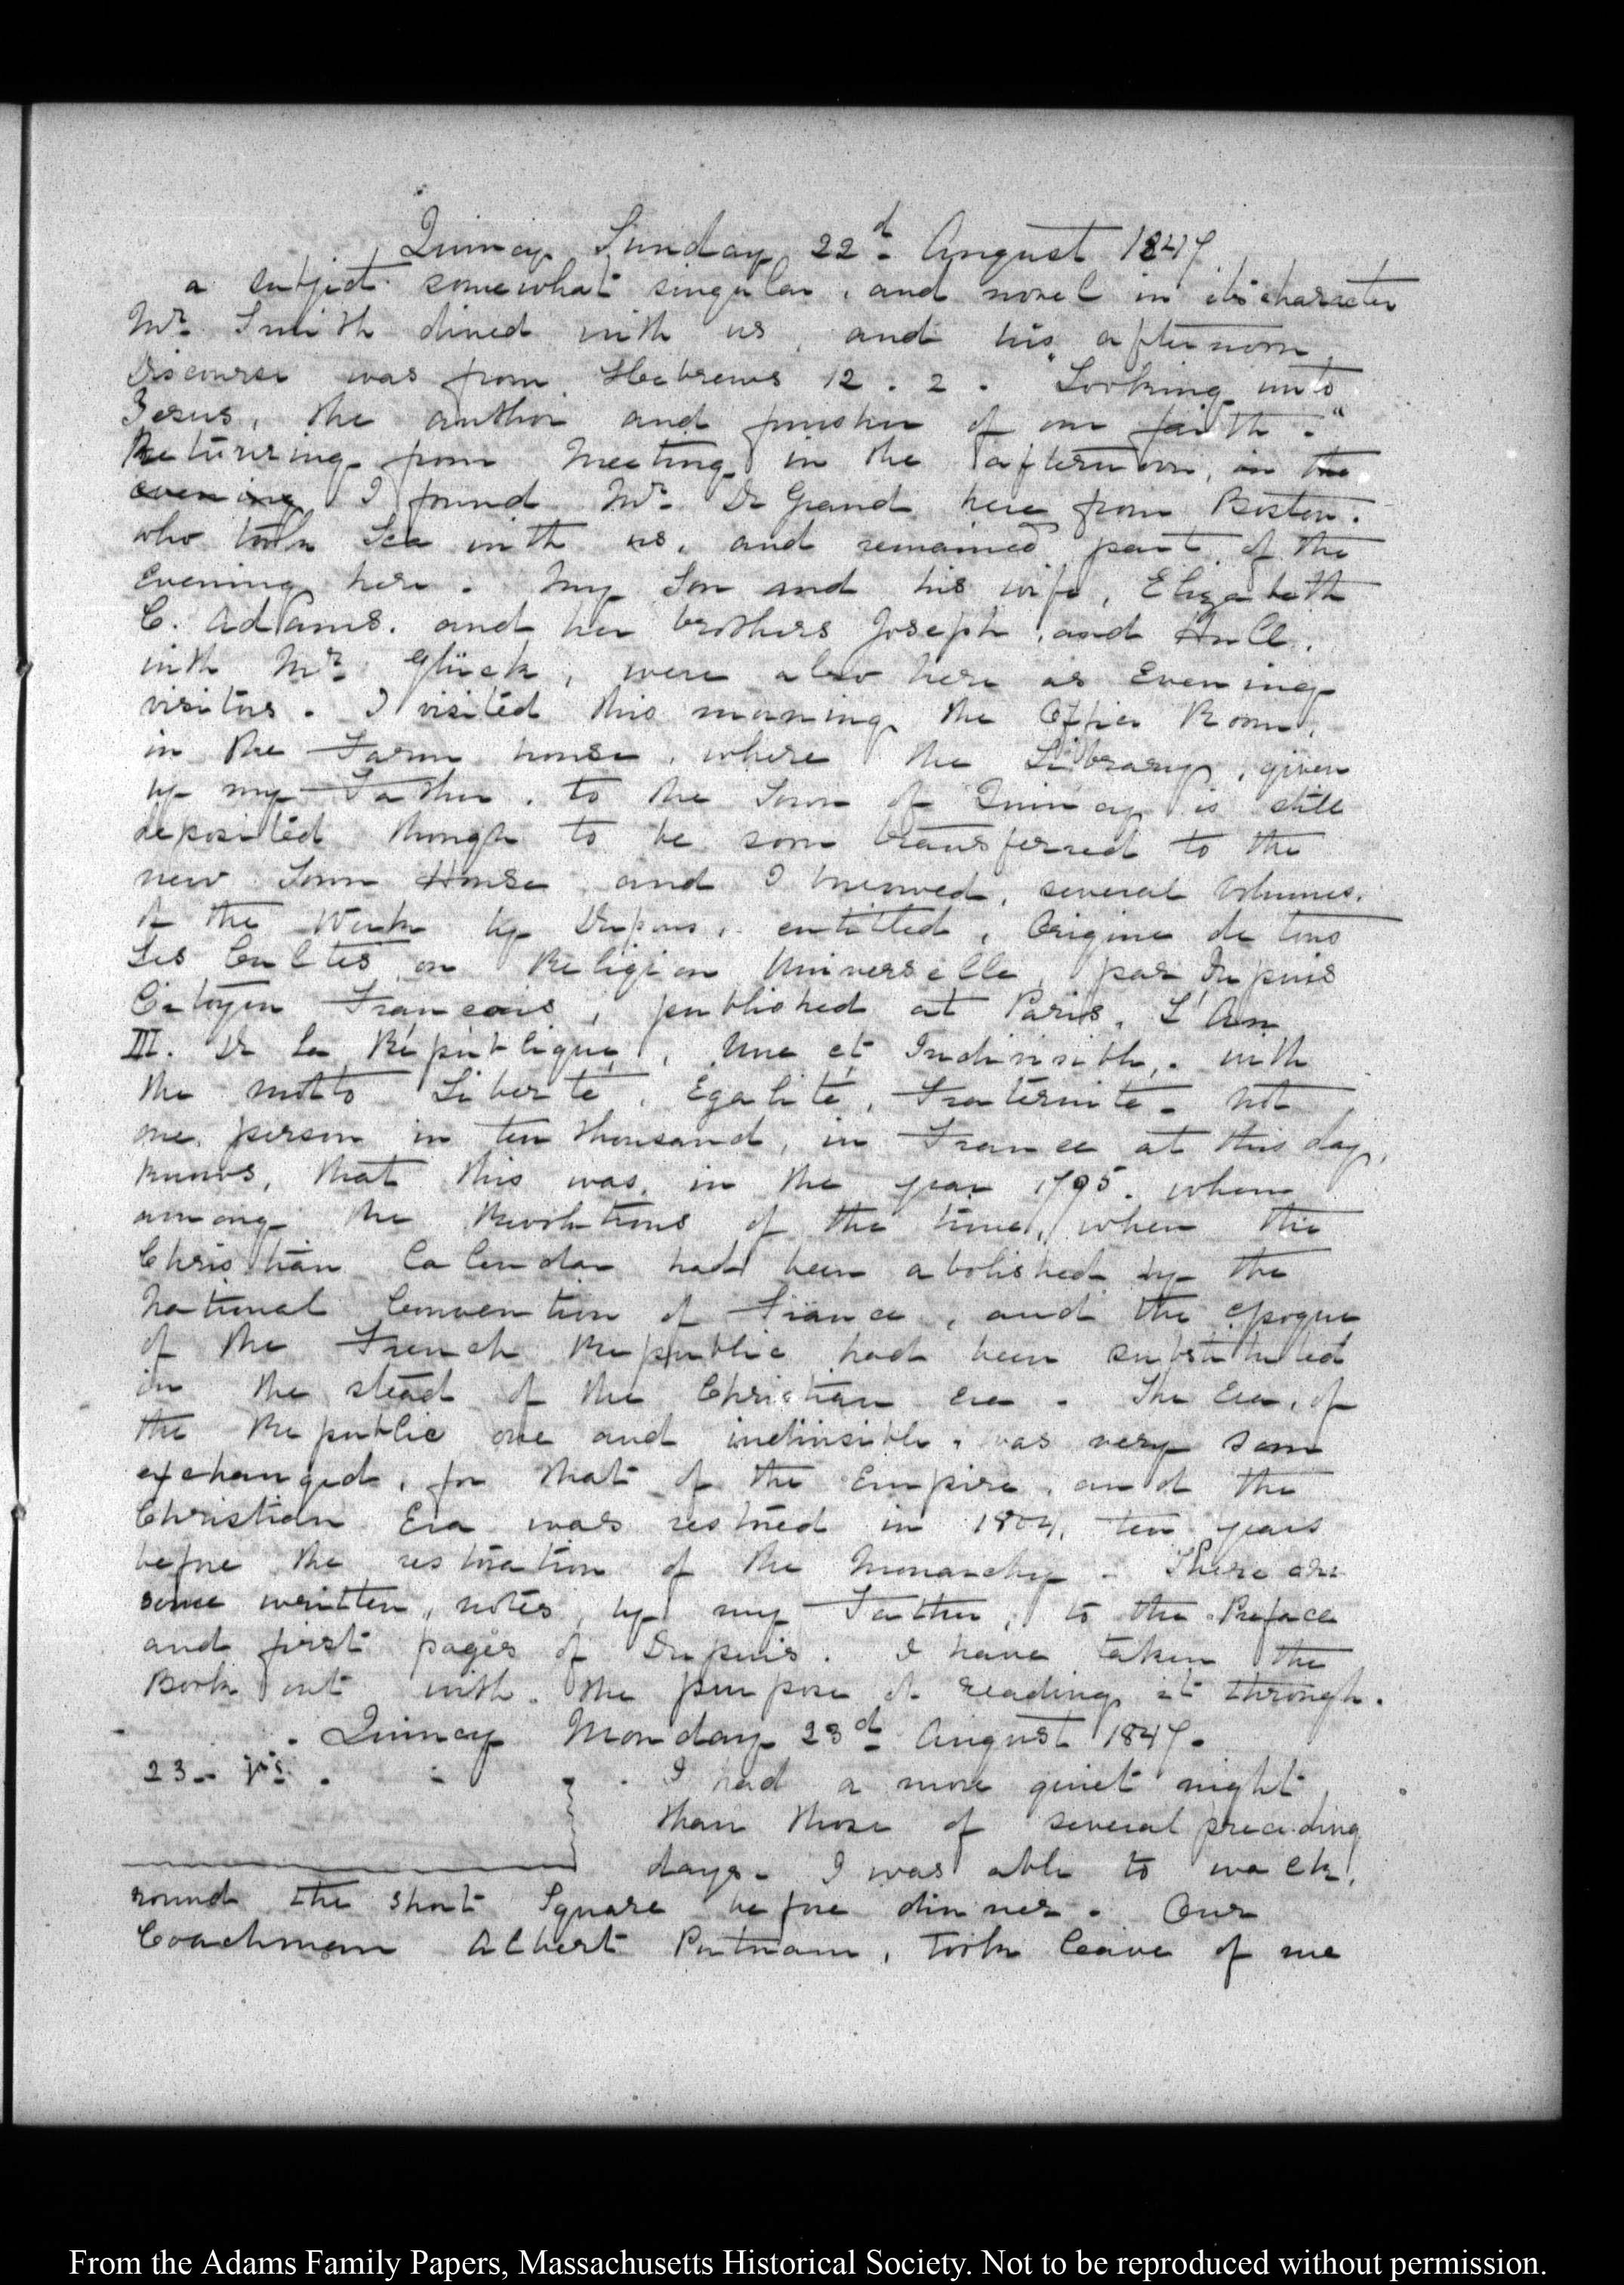 Quincy Sunday 22d. August 1847
a subject somewhat singular, and novel in its character
Mr. Smith dined with us, and his afternoon
Discourse was from Hebrews 12. 2. "Looking unto
Jesus, the author and finisher of our faith."
Returning from Meeting in the afternoon, in the
evening I found Mr. De Grand here from Boston.
who took Tea with us, and remained part of the
Evening here. My Son and his wife, Elizabeth
C. Adams. and her brothers Joseph, and Hull.
with Mr. Glück, were also here as Evening
visitors. I visited this morning the Office Room,
in the Farm house, where the Library, given
by my Father, to the Town of Quincy is still
deposited though to be soon transferred to the
new Town House and I viewed, several Volumes.
of the Work by Dupuis, entitled, Origine de tous
Les Cultes, ou Religion Universelle, par Dupuis
Citoyen François, published at Paris, L'An
III. De La République, Une et Indivisible,. with
the motto Liberté, Egalité, Fraternité. Not
one person in ten thousand, in France at this day,
knows, that this was, in the year 1795. when
among the Revolutions of the time, when the
Christian Calendar had been abolished by the
National Convention of France, and the epoque
of the French Republic had been substituted
in the stead of the Christian era. The Era, of
the Republic one and indivisible, was very soon
exchanged, for that of the Empire, and the
Christian Era was restored in 1804, ten years
before the restoration of the Monarchy. There are
some written, notes, by my Father, to the Preface
and first pages of Dupuis. I have taken the
Book out with the purpose of reading it through.
Quincy Monday 23d. August 1847.
23. I had a more quiet night
than those of several preceding
days. I was able to walk,
round the short Square before dinner. Our
Coachman Albert Putnam, took leave of me
From the Adams Family Papers, Massachusetts Historical Society. Not to be reproduced without permission.